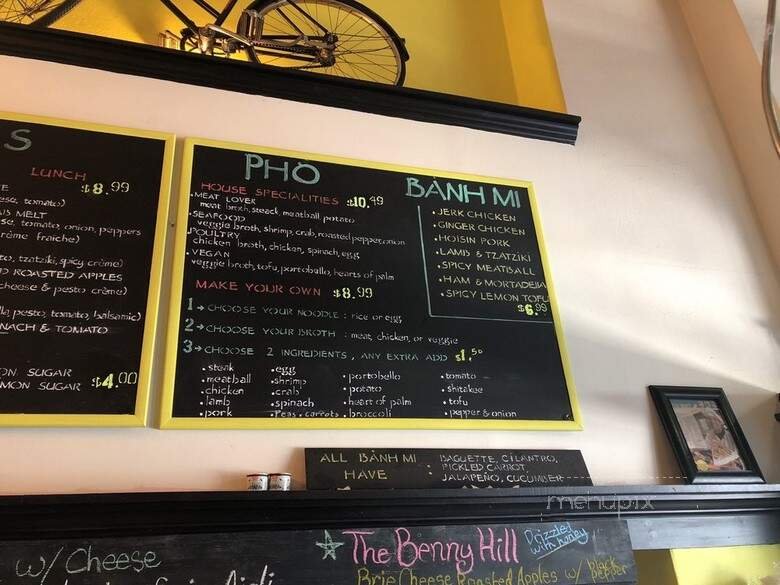 S
LUNCH
$8.99
ese, tomato)
MELT
se, tomato, onion, peppers
crème fraiche)
to, tzatziki, spicy crème)
D ROASTED APPLES
cheese & pesto crème)
pesto, tomato, balsamic)
NACH & TOMATO
ON SUGAR
MON SUGAR $4.00
PHO
HOUSE SPECIALITIES $10.49
• MEAT LOVER
meat broth, steack, meatball, potato
• SEAFOOD
veggie broth, shrimp, crab, roasted pepper, onion
POULTRY
chicken broth, chicken, spinach, egg
• VEGAN
veggie broth, tofu, portobello, hearts of palm
MAKE YOUR OWN $8.99
1 → CHOOSE YOUR NOODLE : rice or egg
2 → CHOOSE YOUR BROTH : meat, chicken, or veggie
3 → CHOOSE 2 INGREDIENTS, ANY EXTRA ADD $1.50
• steak
• meatball
• chicken
• lamb
• pork
• egg
• shrimp
• crab
• spinach
• Peas, carrots
• portobello
• potato
• heart of palm
• broccoli
• tomato
• shitakee
• tofu
• pepper & onion
BÁNH MI
• JERK CHICKEN
• GINGER CHICKEN
• HOISIN PORK
• LAMB & TZATZIKI
• SPICY MEATBALL
• HAM & MORTADELA
• SPICY LEMON TOFU
$6.99
ALL BÁNH MI HAVE :
BAGUETTE, CILANTRO,
PICKLED CARROT,
JALAPEÑO, CUCUMBER
menupix
w/ Cheese
Aioli
☆ The Benny Hill
Drizzled
with honey
Brie Cheese Roasted Apples w/ black pepper